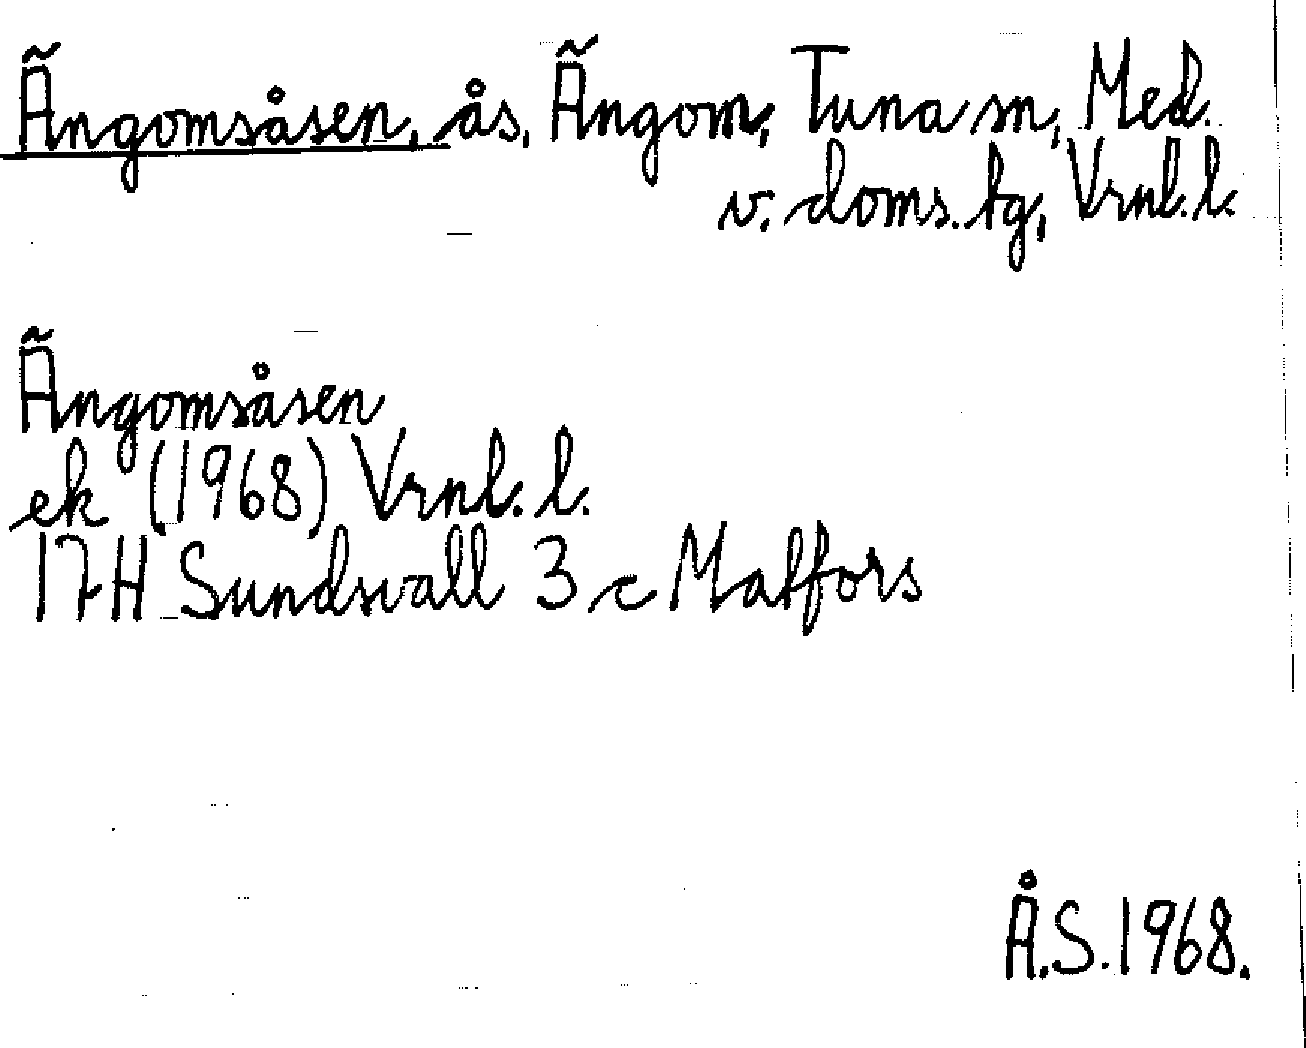 Ängomsåsen, ås, Ängom, Tuna sn, Med.
v. doms. tg, Vrnl. l.
Ängomsåsen
ek (1968) Vrnl. l.
17H Sundsvall 3 c Matfors
Å.S. 1968.